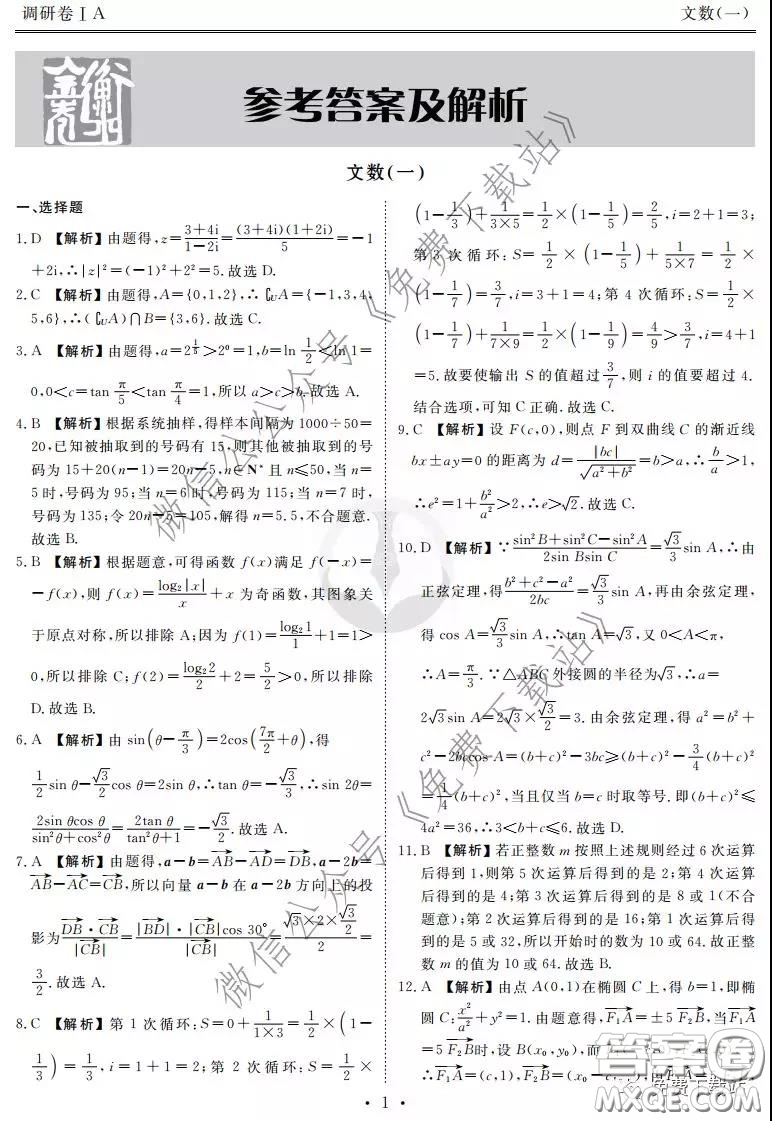 调研卷ⅠA
文数(一)
参考答案及解析
文数(一)
一、选择题
1.D 【解析】由题得,z=\frac{3+4i}{1-2i}=\frac{(3+4i)(1+2i)}{5}=-1
+2i,∴|z|²=(-1)²+2²=5.故选D.
2.C 【解析】由题得,A={0,1,2},∴∁_UA={-1,3,4,
5,6},∴(∁_UA)∩B={3,6}.故选C.
3.A 【解析】由题得,a=2^{\frac{1}{5}}>2⁰=1,b=ln\frac{1}{2}<ln 1=
0,0<c=tan\frac{π}{5}<tan\frac{π}{4}=1,所以a>c>b.故选A.
4.B 【解析】根据系统抽样,得样本间隔为1000÷50=
20,已知被抽取到的号码有15,则其他被抽取到的号
码为15+20(n-1)=20n-5,n∈N*且n≤50,当n=
5时,号码为95;当n=6时,号码为115;当n=7时,
号码为135;令20n-5=105,解得n=5.5,不合题意.
故选B.
5.B 【解析】根据题意,可得函数f(x)满足f(-x)=
-f(x),则f(x)=\frac{log₂|x|}{x}+x为奇函数,其图象关
于原点对称,所以排除A;因为f(1)=\frac{log₂1}{1}+1=1>
0,所以排除C;f(2)=\frac{log₂2}{2}+2=\frac{5}{2}>0,所以排除
D.故选B.
6.A 【解析】由sin(θ-\frac{π}{3})=2cos(\frac{7π}{2}+θ),得
\frac{1}{2}sin θ-\frac{√3}{2}cos θ=2sin θ,∴tan θ=-\frac{√3}{3},∴sin 2θ=
\frac{2sin θcos θ}{sin²θ+cos²θ}=\frac{2tan θ}{tan²θ+1}=-\frac{√3}{2}.故选A.
7.A 【解析】a-b=\overrightarrow{AB}-\overrightarrow{AD}=\overrightarrow{DB},a-2b=
\overrightarrow{AB}-\overrightarrow{AC}=\overrightarrow{CB},所以向量a-b在a-2b方向上的投
影为\frac{\overrightarrow{DB}·\overrightarrow{CB}}{|\overrightarrow{CB}|}=\frac{|\overrightarrow{BD}|·|\overrightarrow{CB}|cos 30°}{|\overrightarrow{CB}|}=\frac{√3×2×\frac{√3}{2}}{2}=
\frac{3}{2}.故选A.
8.C 【解析】第1次循环:S=0+\frac{1}{1×3}=\frac{1}{2}×(1-
\frac{1}{3})=\frac{1}{3},i=1+1=2;第2次循环:S=\frac{1}{2}×
(1-\frac{1}{3})+\frac{1}{3×5}=\frac{1}{2}×(1-\frac{1}{5})=\frac{2}{5},i=2+1=3;
第3次循环:S=\frac{1}{2}×(1-\frac{1}{5})+\frac{1}{5×7}=\frac{1}{2}×
(1-\frac{1}{7})=\frac{3}{7},i=3+1=4;第4次循环:S=\frac{1}{2}×
(1-\frac{1}{7})+\frac{1}{7×9}=\frac{1}{2}×(1-\frac{1}{9})=\frac{4}{9}>\frac{3}{7},i=4+1
=5.故要使输出S的值超过\frac{3}{7},则i的值要超过4.
结合选项,可知C正确.故选C.
9.C 【解析】设F(c,0),则点F到双曲线C的渐近线
bx±ay=0的距离为d=\frac{|bc|}{\sqrt{a²+b²}}=b>a,∴\frac{b}{a}>1,
∴e²=1+\frac{b²}{a²}>2,∴e>√2.故选C.
10.D 【解析】∵\frac{sin²B+sin²C-sin²A}{2sin Bsin C}=\frac{√3}{3}sin A,∴由
正弦定理,得\frac{b²+c²-a²}{2bc}=\frac{√3}{3}sin A,再由余弦定理,
得cos A=\frac{√3}{3}sin A,∴tan A=√3,又0<A<π,
∴A=\frac{π}{3}.∵△ABC外接圆的半径为√3,∴a=
2√3sin A=2√3×\frac{√3}{2}=3.由余弦定理,得a²=b²+
c²-2bccos A=(b+c)²-3bc≥(b+c)²-\frac{3}{4}(b+c)²
=\frac{1}{4}(b+c)²,当且仅当b=c时取等号.即(b+c)²≤
4a²=36,∴3<b+c≤6.故选D.
11.B 【解析】若正整数m按照上述规则经过6次运算
后得到1,则第5次运算后得到的是2;第4次运算后
后得到的是4;第3次运算后得到的是8或1(不合
题意);第2次运算后得到的是16;第1次运算后得到
的是5或32,所以开始时的数为10或64.故正整
数m的值为10或64.故选B.
12.A 【解析】由点A(0,1)在椭圆C上,得b=1,即椭
圆C:\frac{x²}{a²}+y²=1.由题意得,\overrightarrow{F₁A}=±5\overrightarrow{F₂B},当\overrightarrow{F₁A}
=5\overrightarrow{F₂B}时,设B(x₀,y₀),而
∴\overrightarrow{F₁A}=(c,1),\overrightarrow{F₂B}=(x₀
• 1 •
微信公众号《免费下载站》
微信公众号《免费下载站》
免费下载站
答案卷
MXQE.COM